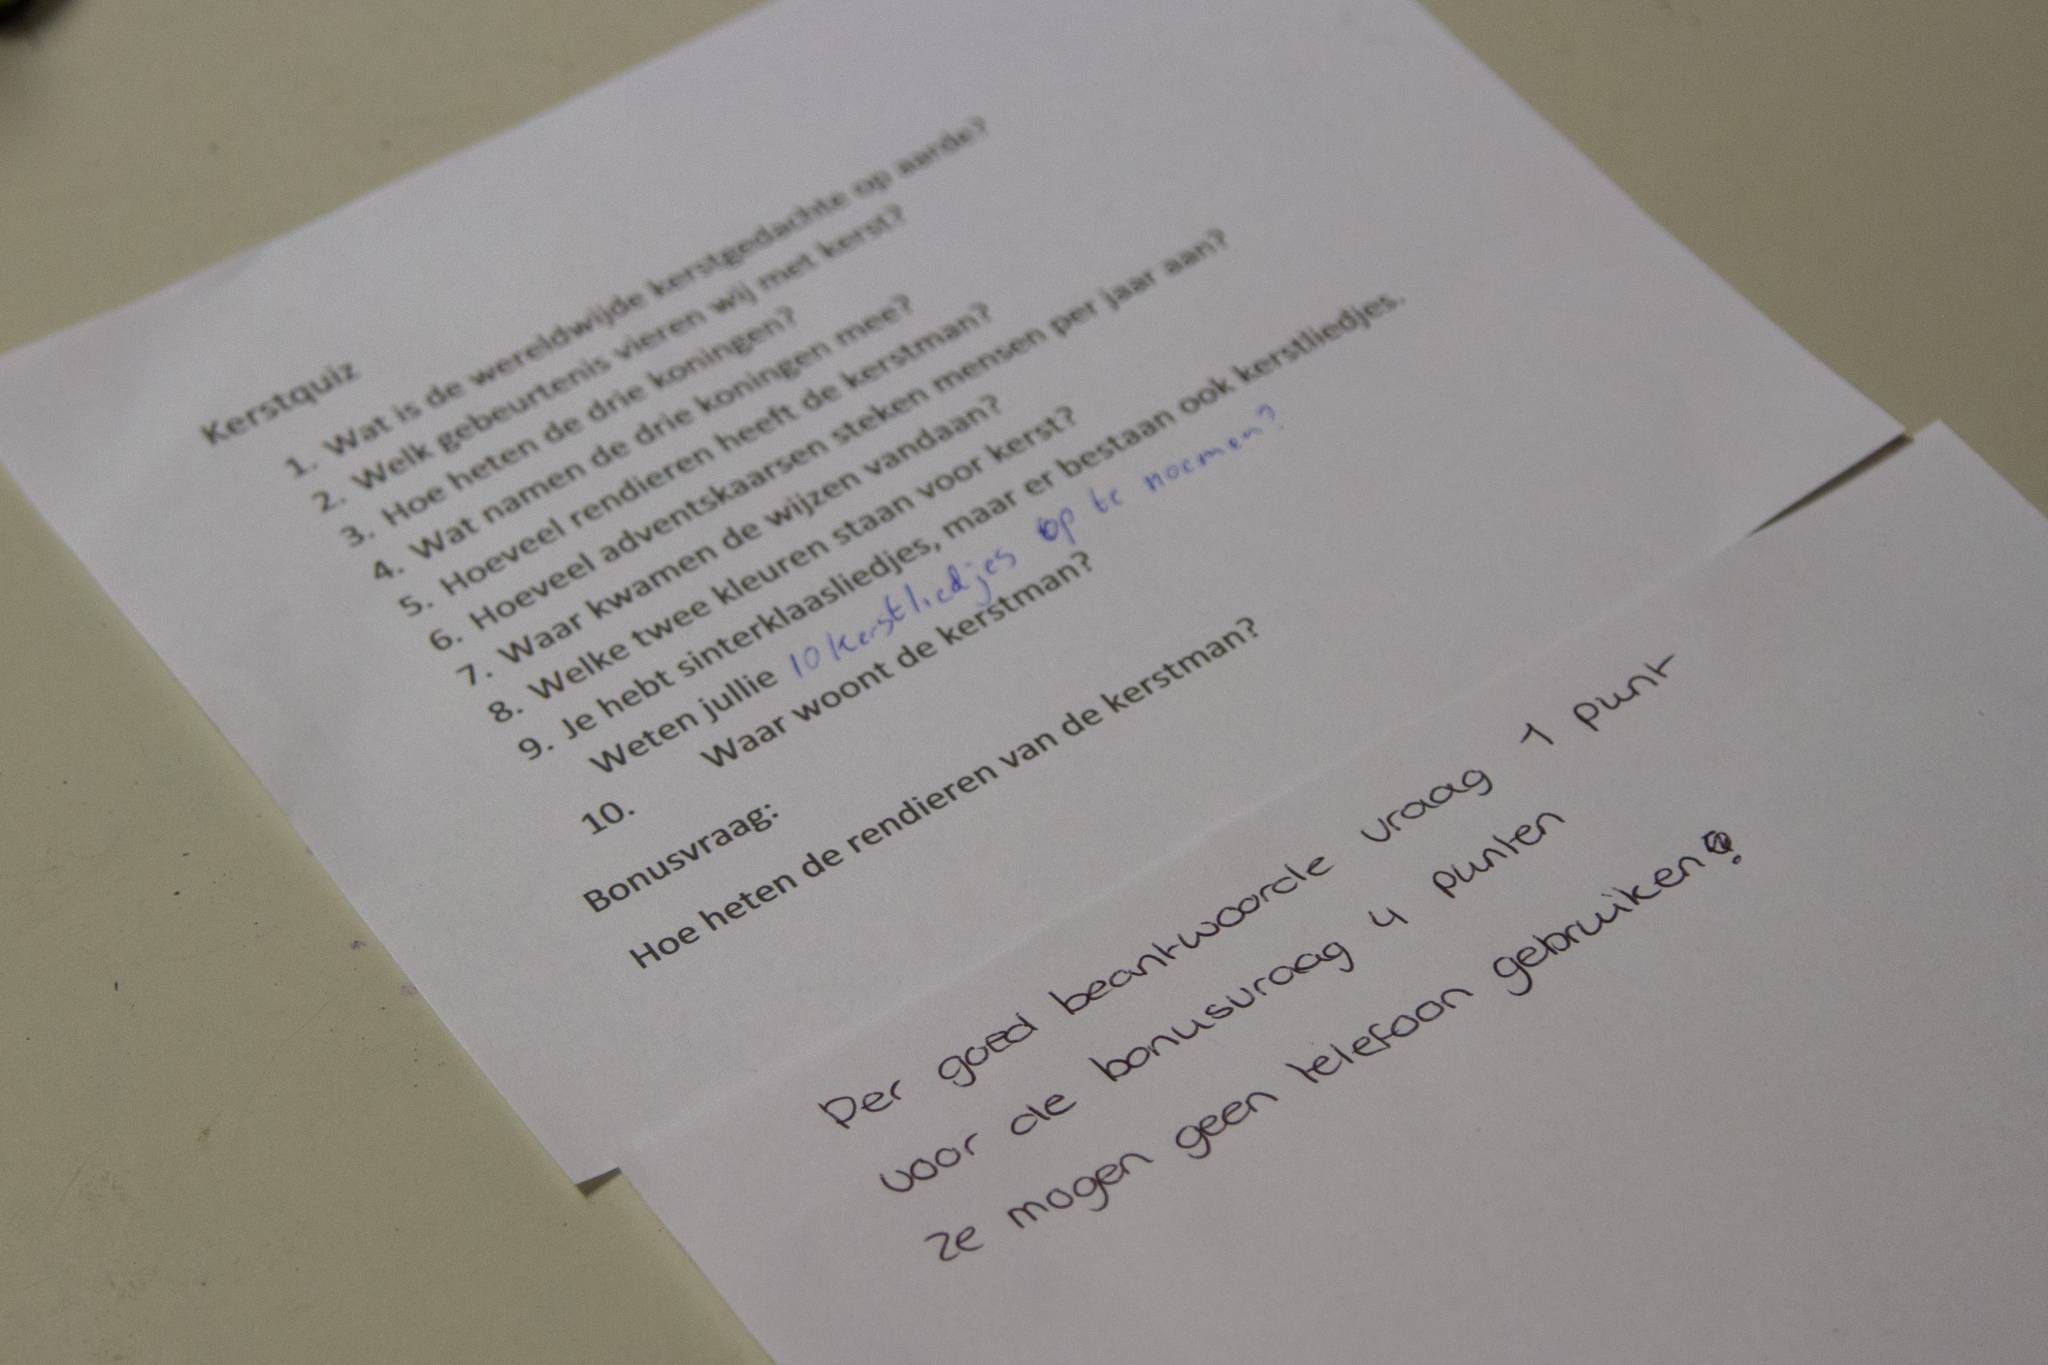 Kerstquiz
1. Wat is de wereldwijde kerstgedachte op aarde?
2. Welk gebeurtenis vieren wij met kerst?
3. Hoe heten de drie koningen?
4. Wat namen de drie koningen mee?
5. Hoeveel rendieren heeft de kerstman?
6. Hoeveel adventskaarsen steken mensen per jaar aan?
7. Waar kwamen de wijzen vandaan?
8. Welke twee kleuren staan voor kerst?
9. Je hebt sinterklaasliedjes, maar er bestaan ook kerstliedjes.
Weten jullie 10 kerstliedjes op te noemen?
10. Waar woont de kerstman?
Bonusvraag:
Hoe heten de rendieren van de kerstman?
Per goed beantwoorde vraag 1 punt
voor de bonusvraag 4 punten
ze mogen geen telefoon gebruiken?